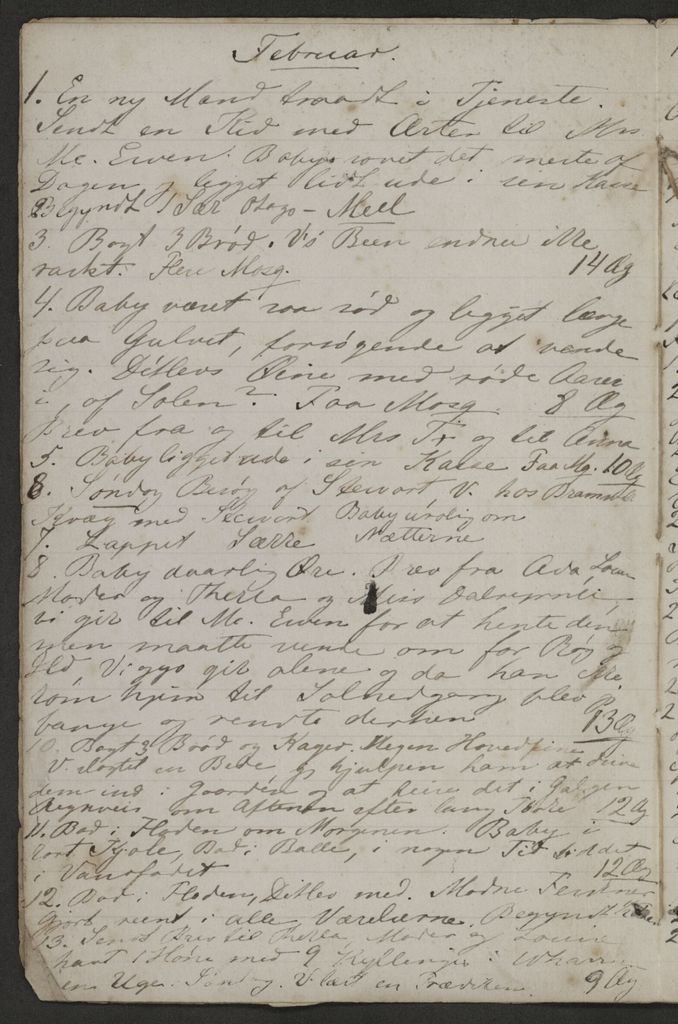 Februar.
1. En ny Mand traadt i Tjeneste.
Sendt en Kid med Ærter til Mrs
Mc. Ewen. Baby sovet det meste af
Dagen, ligget lidt ude i sin Kasse
Begyndt 1 Sæk Otago-Meel
3. Bagt 3 Brød. V's Been endnu ikke
raskt. Flere Mosq. 14 Æg
4. Baby været saa sød og ligget længe
paa Gulvet, forsøgende at vende
sig. Ditlevs Øine med røde Aarer
i, af Solen? Faa Mosq. 8 Æg
Brev fra og til Mrs Fr og til Anna
5. Baby ligget ude i sin Kasse Faa Mq. 10 Æg
6. Søndag Besøg af Stewart, V. hos
Kvæg med Stewart Baby urolig om
7. Lappet Sække Nætterne
8. Baby daarlig Øre. Brev fra Ada, Louise
Moder og Thekla og Miss Dalrymple,
vi gik til Mc. Ewen for at hente dem
men maatte vende om for Røg og
Ild Viggo gik alene og da han ikke
kom hjem til Solnedgang blev
bange og rendte derhen 13 Æg
10. Bagt 3 Brød og Kager. Megen Hovedpine
V. slagtet en Bede jeg hjulpen ham at drive
dem ind i Gaarden og at heise det i Galgen
Regnveir om Aftenen efter lang Tørke 12 Æg
11. Bad i Floden om Morgenen. Baby i
kort Kjole, Bad i Balle, i nogen Tid siddet
i Vandfadet 12 Æg
12. Bad i Floden, Ditlev med. Modne Ferskner
Gjort reent i alle Værelserne. Begyndt
13. Sendt Brev til Thekla, Moder og Louise
1 Høne med 9 Kyllinger i
en Uge. Søndag. V. læst en Prædiken. 9 Æg